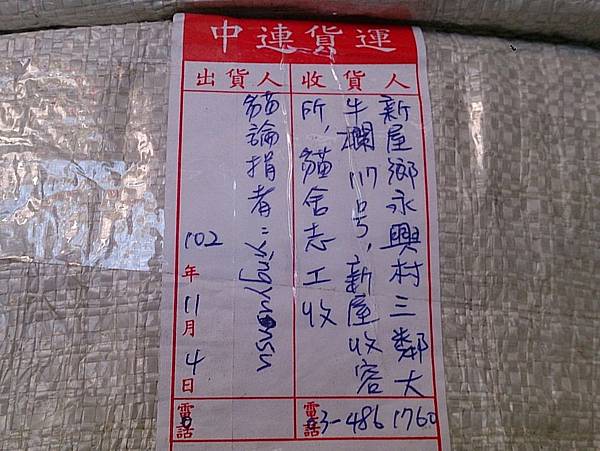 中連貨運
收貨人
新屋鄉永興村三鄰大
牛欄117号，新屋收容
所，貓舍志工收
電話
03-4861760
出貨人
貓論捐者：
102年11月4日
電話